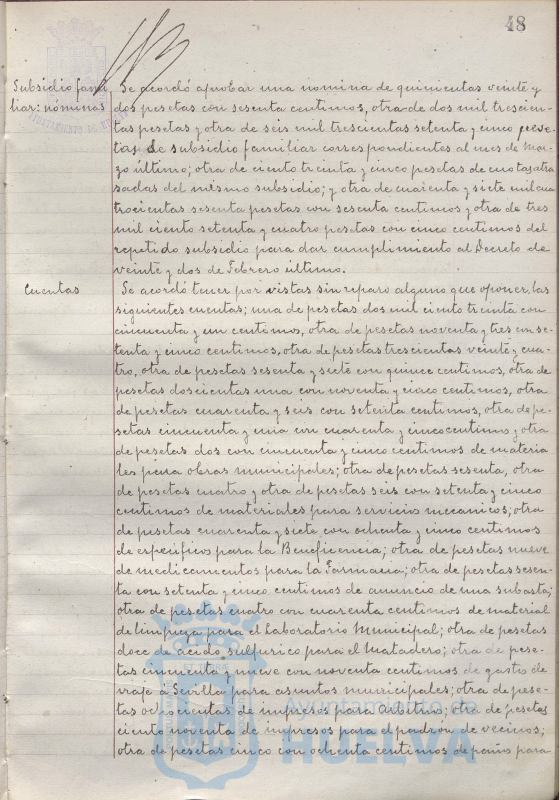 48
Subsidio fami
liar: nóminas
Se acordó aprobar una nomina de quinientas veinte y
dos pesetas con sesenta centimos, otra de dos mil trescien-
tas pesetas y otra de seis mil trescientas setenta y cinco pese-
tas de subsidio familiar correspondientes al mes de Mar-
zo último; otra de ciento treinta y cinco pesetas de cuotas atra
sadas del mismo subsidio; y otra de cuarenta y siete mil cua
trocientas sesenta pesetas con sesenta centimos y otra de tres
mil ciento setenta y cuatro pesetas con cinco centimos del
repetido subsidio para dar cumplimiento al Decreto de
veinte y dos de Febrero último.
Cuentas
Se acordó tener por vistas sin reparo alguno que oponer, las
siguientes cuentas; una de pesetas dos mil ciento treinta con
cincuenta y un centimos, otra de pesetas noventa y tres con se-
tenta y cinco centimos, otra de pesetas trescientas veinte y cua-
tro, otra de pesetas sesenta y siete con quince centimos, otra de
pesetas doscientas una con noventa y cinco centimos, otra
de pesetas cuarenta y seis con setenta centimos, otra de pe-
setas cincuenta y una con cuarenta y cinco centimos y otra
de pesetas dos con cincuenta y cinco centimos de materia
les para obras municipales; otra de pesetas sesenta, otra
de pesetas cuatro y otra de pesetas seis con setenta y cinco
centimos de materiales para servicio mecanicos; otra
de pesetas cuarenta y siete con ochenta y cinco centimos
de especificos para la Beneficencia; otra de pesetas nueve
de medicamentos para la Farmacia; otra de pesetas sesen-
ta con setenta y cinco centimos de anuncio de una subasta;
otra de pesetas cuatro con cuarenta centimos de material
de limpieza para el Laboratorio Municipal; otra de pesetas
doce de acido sulfurico para el Matadero; otra de pese-
tas cincuenta y nueve con noventa centimos de gastos de
viaje a Sevilla para asuntos municipales; otra de pese-
tas ochocientas de impresos para Arbitrios; otra de pesetas
ciento noventa de impresos para el padron de vecinos;
otra de pesetas cinco con ochenta centimos de paños para
Ayuntamiento de
HUELVA